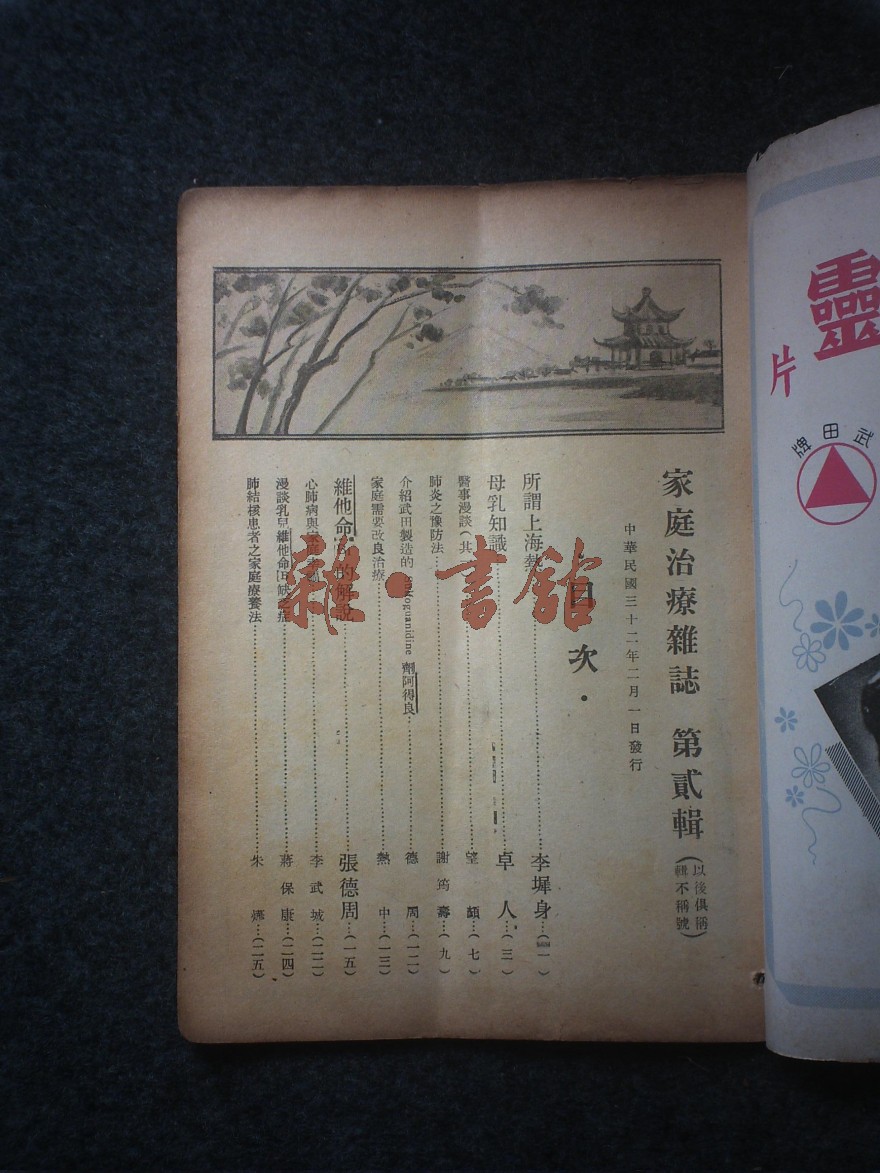 家庭治療雜誌 第貳輯(以後俱稱
輯不稱號)
中華民國三十二年二月一日發行
·目次·
所謂上海熱 李墀身(一)
母乳知識 卓人(三)
醫事漫談(其 望 (七)
肺炎之豫防法 謝筠壽(九)
介紹武田製造的 guanidine 劑阿得良 德周(一二)
家庭需要改良治療 熱中(一三)
維他命 的解說 張德周(一五)
心肺病與 李武城(二二)
漫談乳兒維他命B缺乏症 蔣保康(二四)
肺結核患者之家庭療養法 朱 (二五)
雜·書舘
靈
片
武田牌